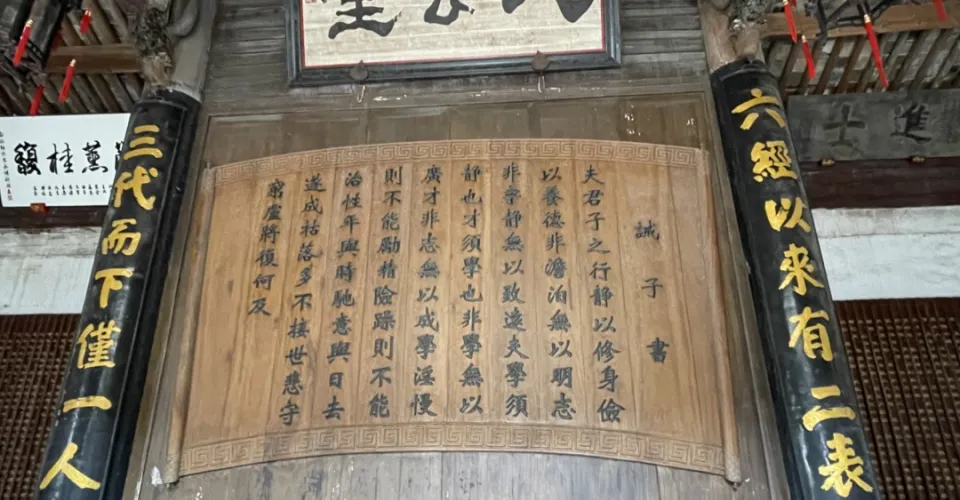 進士
六經以來有二表
誡子書
夫君子之行静以修身儉
以養德非澹泊無以明志
非寧静無以致遠夫學須
静也才須學也非學無以
廣才非志無以成學淫慢
則不能勵精險躁則不能
治性年與時馳意與日去
遂成枯落多不接世悲守
窮廬將復何及
三代而下僅一人
薰桂馥